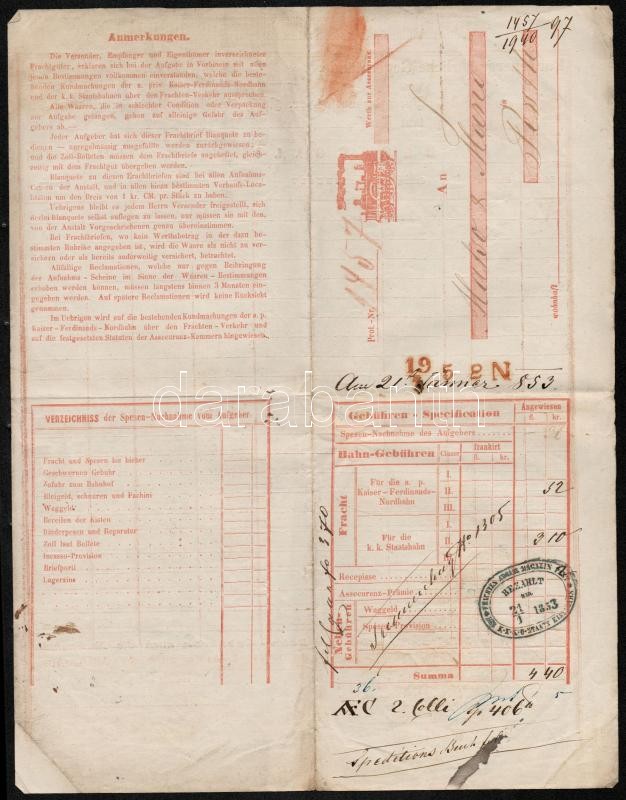 Anmerkungen.
Die Versender, Empfänger und Eigenthümer inverzeichneter
Frachtgüter, erklären sich bei der Aufgabe in Vorhinein mit allen
jenen Bestimmungen vollkommen einverstanden, welche die bestehenden
Kundmachungen der a. priv. Kaiser-Ferdinands-Nordbahn
und der k. k. Staatsbahnen über den Frachten-Verkehr aussprechen.
Alle Waaren, die in schlechter Condition oder Verpackung
zur Aufgabe gelangen, gehen auf alleinige Gefahr des Aufgebers
ab. —
Jeder Aufgeber hat sich dieser Frachtbrief Blanquete zu bedienen
— unregelmässig ausgefüllte werden zurückgewiesen; —
und die Zoll-Bolleten müssen dem Frachtbriefe angeheftet, gleichzeitig
mit dem Frachtgut übergeben werden.
Blanquete zu diesen Frachtbriefen sind bei allen
der Anstalt, und in allen hiezu bestimmten
um den Preis von 1 kr. CM. pr. Stück zu haben.
Uebrigens bleibt es jedem Herrn Versender freigestellt, sich
derlei Blanquete selbst auflegen zu lassen, nur müssen sie mit den,
von der Anstalt Vorgeschriebenen genau übereinstimmen.
Bei Frachtbriefen, wo kein Werthsbetrag in der dazu bestimmten
Rubrike angegeben ist, wird die Waare als nicht zu versichern
oder als bereits anderweitig versichert, betrachtet.
Allfällige Reclamationen, welche nur gegen Beibringung
der Aufnahms-Scheine im Sinne der Waaren-Bestimmungen
erhoben werden können, müssen längstens binnen 3 Monaten eingegeben
werden. Auf spätere Reclamationen wird keine Rücksicht
genommen.
Im Uebrigen wird auf die bestehenden Kundmachungen der a. p.
Kaiser-Ferdinands-Nordbahn über den Frachten-Verkehr und
auf die festgesetzten Statuten der Assecuranz-Kammern hingewiesen.
1457/1940 97
Werth zur Assecuranz
An
Prot.-Nr. 1457
wohnhaft
19 5 2 N
Am 21ten Jänner 853
darabanth
VERZEICHNISS der Spesen-Nachnahme vom Aufgeber
Fracht und Spesen bis hieher
Geschworenen Gebühr
Zufuhr zum Bahnhof
Bleigeld, schnüren und Fachini
Waggeld
Bereifen der Kisten
Binderpesen und Reparatur
Zoll laut Bollete
Incasso-Provision
Briefporti
Lagerzins
Gebühren-Specification
Angewiesen
fl. kr.
Spesen-Nachnahme des Aufgebers
Bahn-Gebühren
Classe
frankirt
fl. kr.
Fracht
Für die a. p. Kaiser-Ferdinands-Nordbahn
I.
II. 52
III.
Für die k. k. Staatsbahn
I.
II. 3 10
III.
No 1305
Recepisse
Assecuranz-Prämie
Neben-Gebühren
Waggeld
Spesen-Provision
BEZAHLT
AM
21 1 1853
Summa 4 40
36.
2. Colli
406
5
Speditions Buch